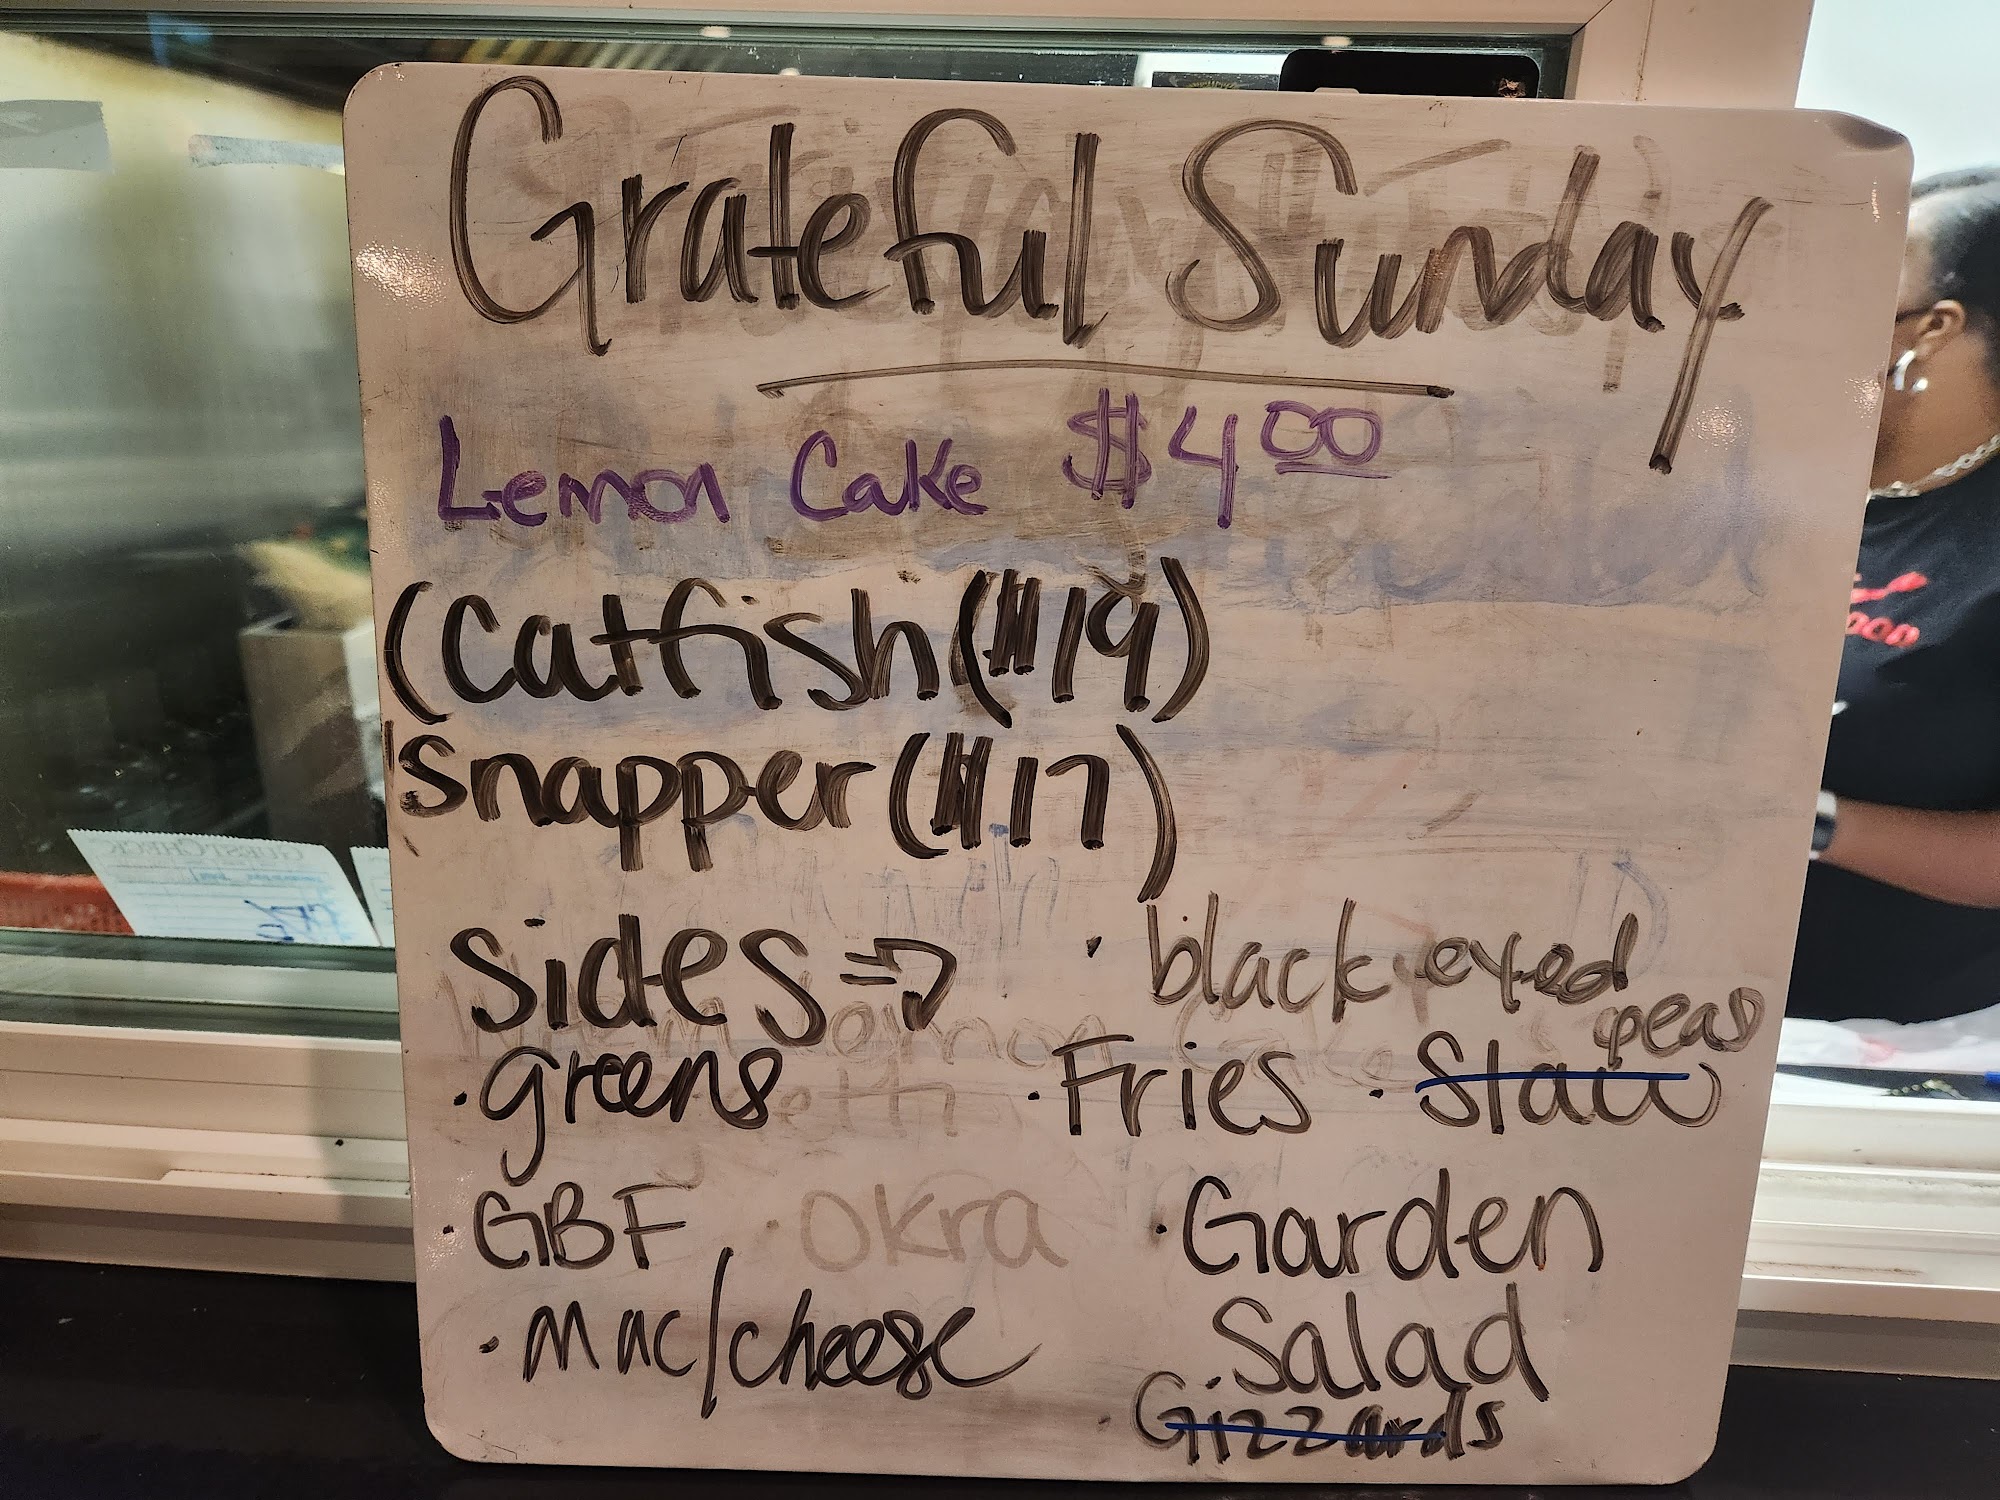 Grateful Sunday
Lemon Cake $4.00
(Catfish ($19)
Snapper ($17)
Sides ⇒
· black eyed peas
· greens
· Fries · Slaw
· GBF · Okra
· Garden Salad
· Mac/cheese
· Gizzards
GUEST CHECK